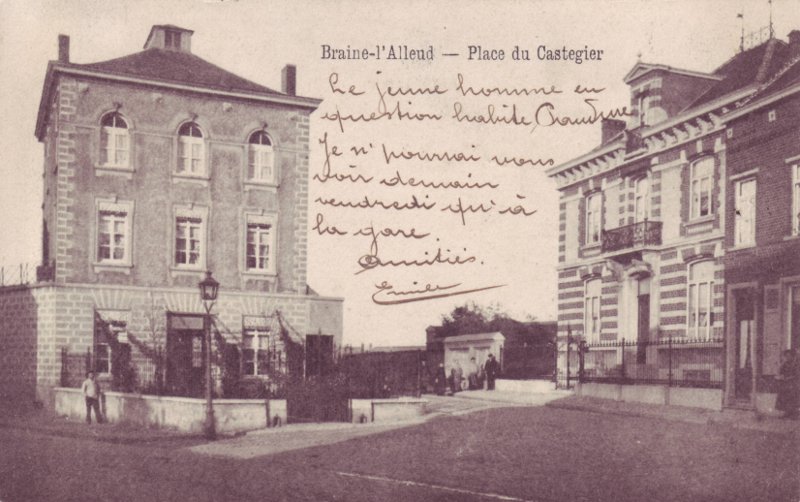 Braine-l'Alleud — Place du Castegier
Le jeune homme en
question habite
Je n'pourrai vous
voir demain
vendredi qu'à
la gare.
Amitiés.
Emile